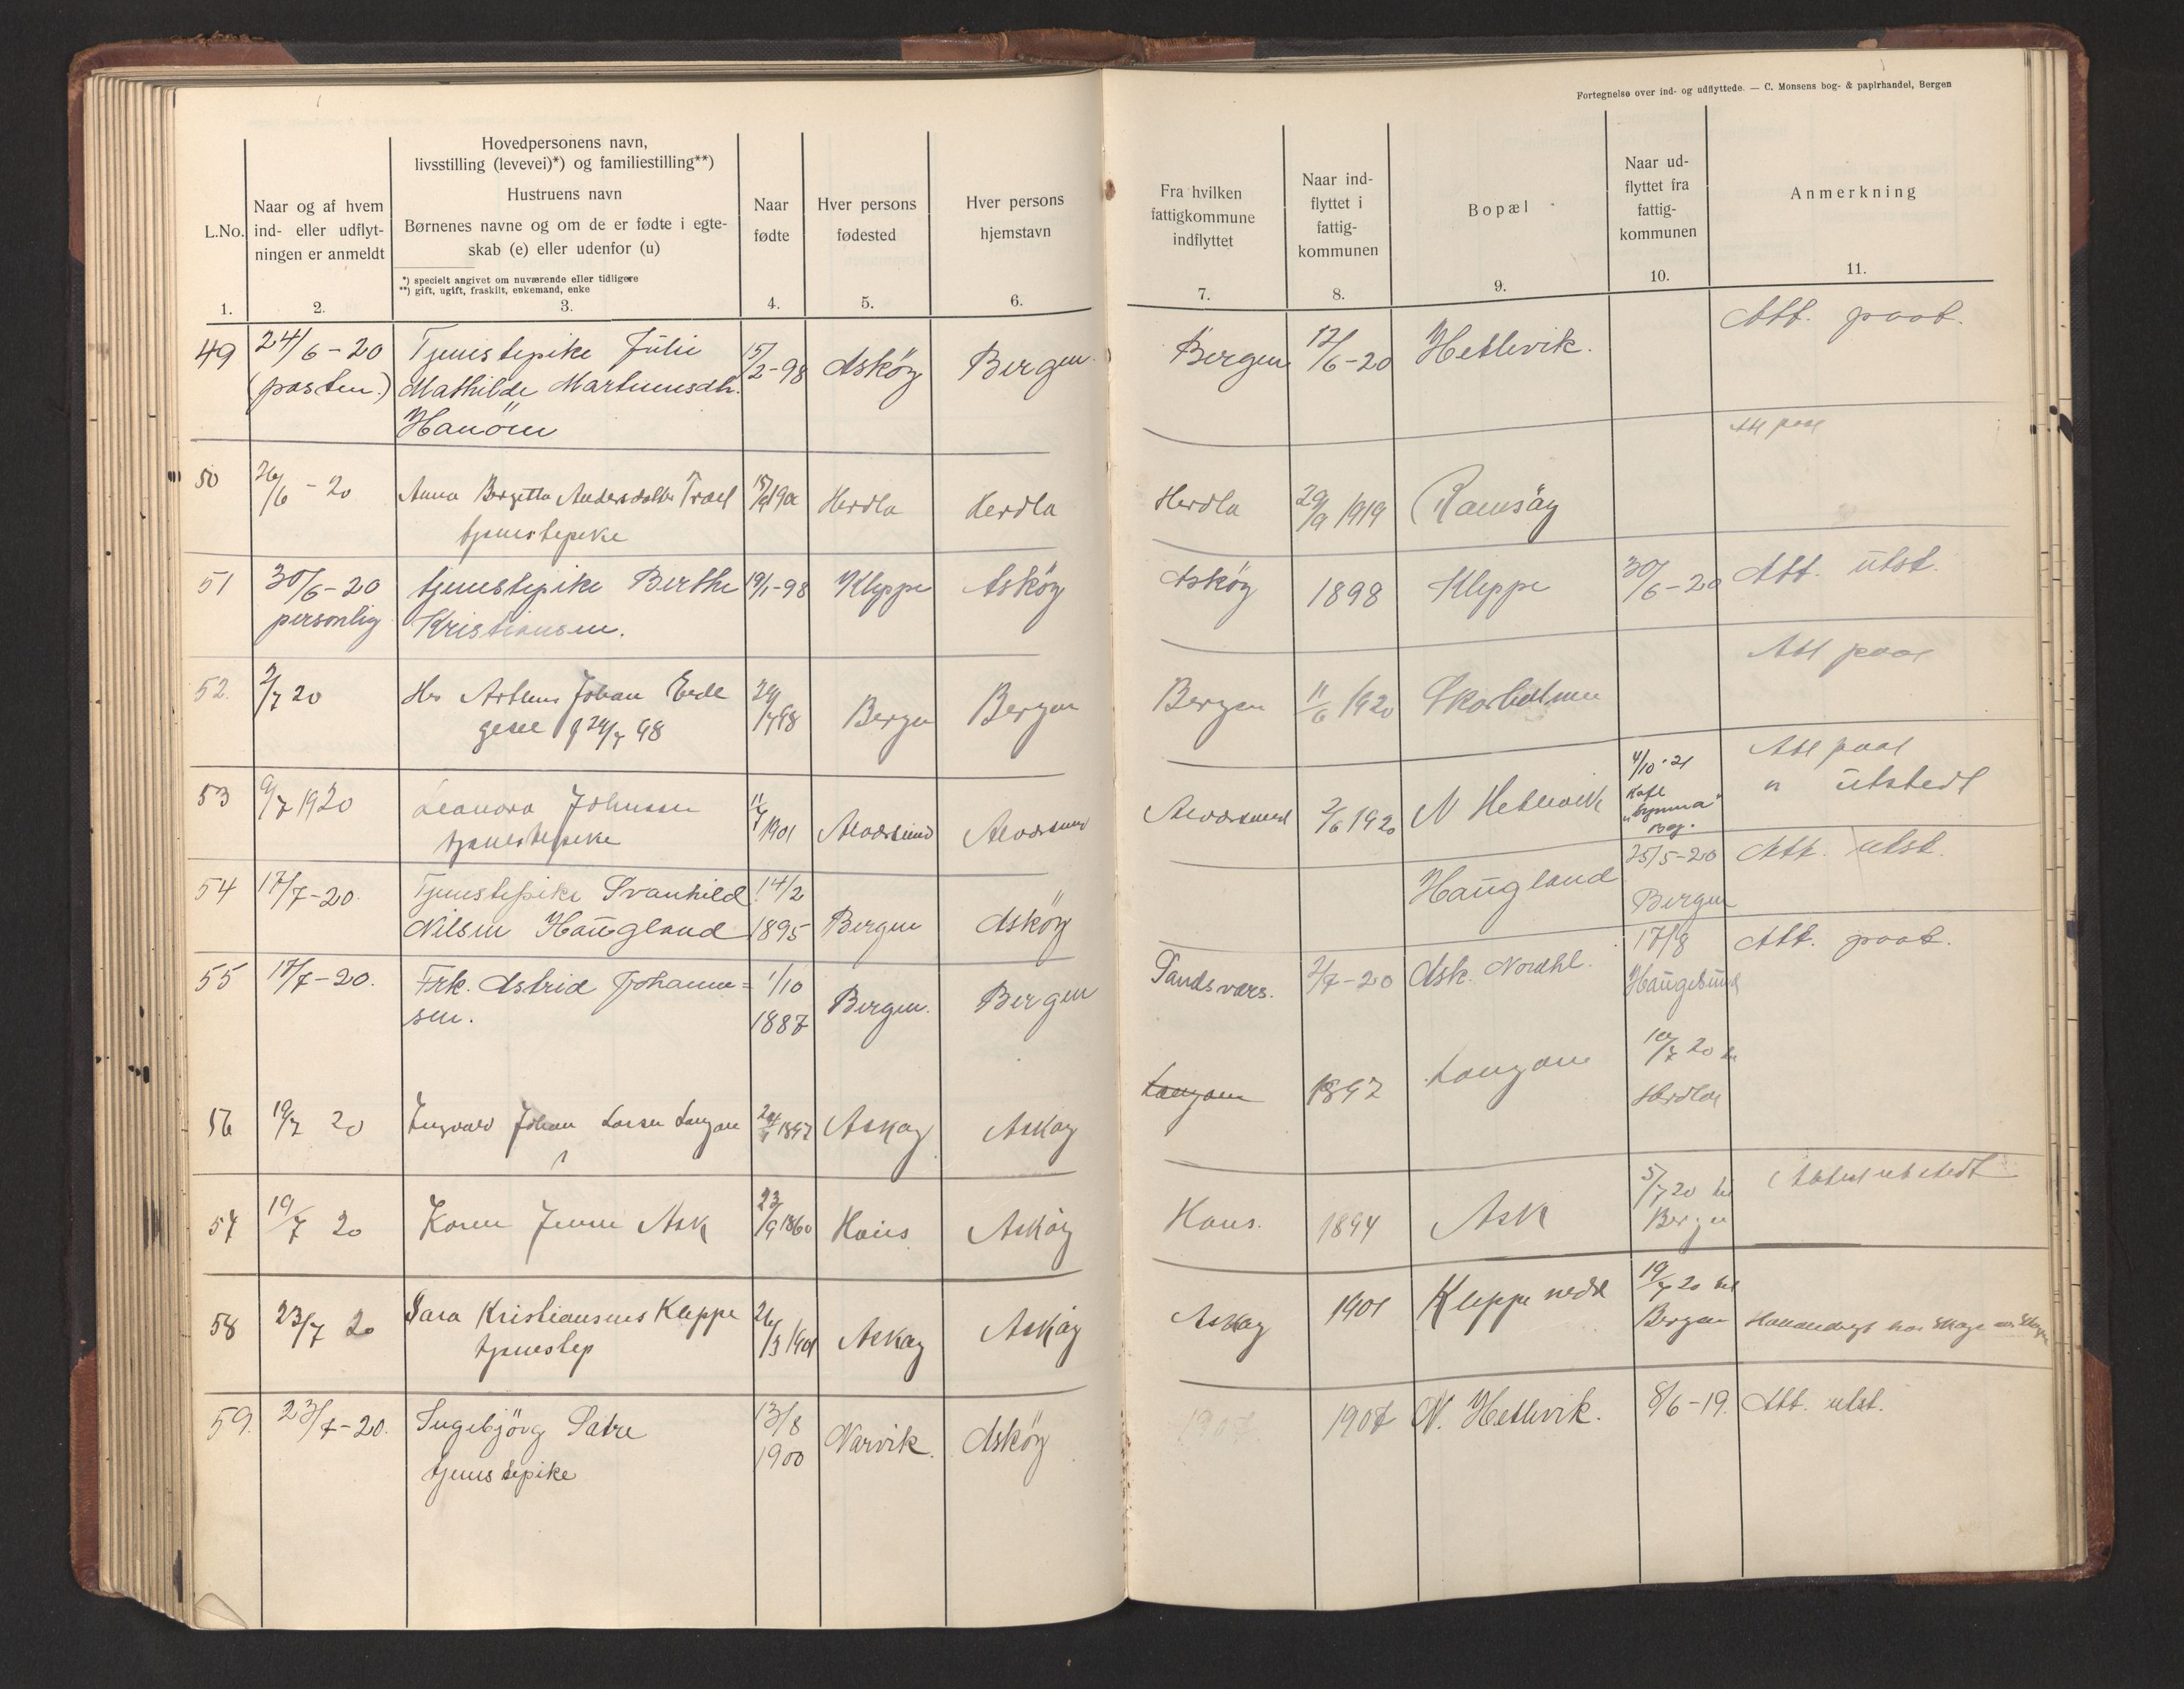 Fortegnelse over ind- og udflyttede. — C. Monsens bog- & papirhandel, Bergen
L.No.
1.
Naar og af hvem
ind- eller udflyt-
ningen er anmeldt
2.
Hovedpersonens navn,
livsstilling (levevei)*) og familiestilling**)
Hustruens navn
Børnenes navne og om de er fødte i egte-
skab (e) eller udenfor (u)
*) specielt angivet om nuværende eller tidligere
**) gift, ugift, fraskilt, enkemand, enke
3.
Naar
fødte
4.
Hver persons
fødested
5.
Hver persons
hjemstavn
6.
Fra hvilken
fattigkommune
indflyttet
7.
Naar ind-
flyttet i
fattig-
kommunen
8.
Bopæl
9.
Naar ud-
flyttet fra
fattig-
kommunen
10.
Anmerkning
11.
49 24/6-20 Tjenestepike Julie 15/2-98 Askøy Bergen Bergen 12/6-20 Hetlevik. Att. paat.
(posten.) Mathilde Martinusdtr.
Hanøen
50 26/6-20 Anna Bergitta Andersdatter Herdla Herdla Herdla 29/9 1919 Ramsøy Att paat
tjenestepike
51 30/6-20 tjenestepike Berthe 19/1-98 Kleppe Askøy Askøy 1898 Kleppe 30/6-20 Att. utst.
personlig Kristiansen.
52. 2/7 20 Hr Johan Bergen Bergen Bergen 11/6 1920 Att paat
24/7 98
53 9/7 1920 Leonora Johnsen 1901 Alværsund Alværsund Alværsund 2/6 1920 N Hetlevik 4/10-21 Att paat
tjenestepike Kafe " utstedt
54 17/7-20. Tjenestepike Svanhild 14/2 Haugland 25/5-20 Att. utst.
Nilsen Haugland 1895 Bergen Askøy Bergen
55 17/7-20. Frk. Astrid Johanne= 1/10 Bergen. Bergen 2/7-20 Ask. Nordhl. 17/8 Att. paat.
sen. 1887 Haugesund
56 19/7 20 Ingvard Johan Larsen Langøen Askøy Askøy Langøen 1897 Langøen 20
Herdla
57 19/7 20 Karen Jensen Ask 1860 Haus Askøy Haus. 1894 Ask 5/7 20 til utstedt
Bergen
58 23/7 20 Sara Kristiansens Kleppe 1901 Askøy Askøy Askøy 1901 Kleppe nedr 19/7 20 til
tjenestep Bergen
59. 23/7-20. Ingebjörg Sætre 13/8 Narvik. Askøy 1907 N. Hetlevik. 8/6-19. Att. utst.
tjenestepike 1900